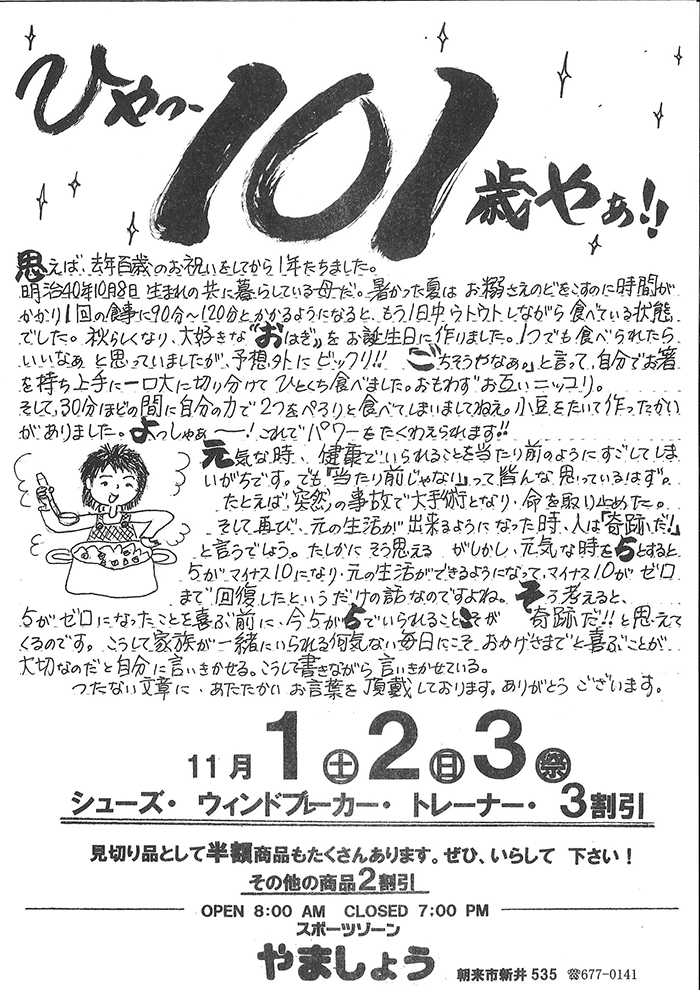 ひゃっー101歳やぁ!!
思えば、去年百歳のお祝いをしてから1年たちました。
明治40年10月8日生まれの共に暮らしている母だ。暑かった夏はお粥さえのどをこすのに時間が
かかり1回の食事に90分〜120分とかかるようになると、もう1日中ウトウトしながら食べている状態
でした。秋らしくなり、大好きな“おはぎ”をお誕生日に作りました。1つでも食べられたら
いいなぁと思っていましたが、予想外にビックリ!!「ごちそうやなぁ。」と言って、自分でお箸
を持ち上手に一口大に切り分けてひとくち食べました。おもわずお互いニッコリ。
そして、30分ほどの間に自分の力で2つをぺろりと食べてしまいましてねえ。小豆をたいて作ったかい
がありました。よっしゃぁ〜!これでパワーをたくわえられます!!
元気な時、健康でいられることを当たり前のようにすごしてしま
いがちです。でも「当たり前じゃない」って皆んな思っているはず。
たとえば、突然の事故で大手術となり、命を取り止めた。
そして再び、元の生活が出来るようになった時、人は「奇跡だ!」
と言うでしょう。たしかにそう思える がしかし、元気な時を5とすると
5がマイナス10になり、元の生活ができるようになって、マイナス10がゼロ
まで回復したというだけの話なのですよね。そう考えると、
5がゼロになったことを喜ぶ前に、今5が5でいられることこそが 奇跡だ!!と思えて
くるのです。こうして家族が一緒にいられる何気ない毎日にこそ、おかげさまでと喜ぶことが
大切なのだと自分に言いきかせる。こうして書きながら言いきかせている。
つたない文章に、あたたかいお言葉を頂戴しております。ありがとうございます。
11月1㊏2㊐3祭
シューズ・ウィンドブレーカー・トレーナー・3割引
見切り品として半額商品もたくさんあります。ぜひ、いらして 下さい!
その他の商品2割引
OPEN 8:00 AM CLOSED 7:00 PM
スポーツゾーン
やましょう 朝来市新井535 ☎677-0141